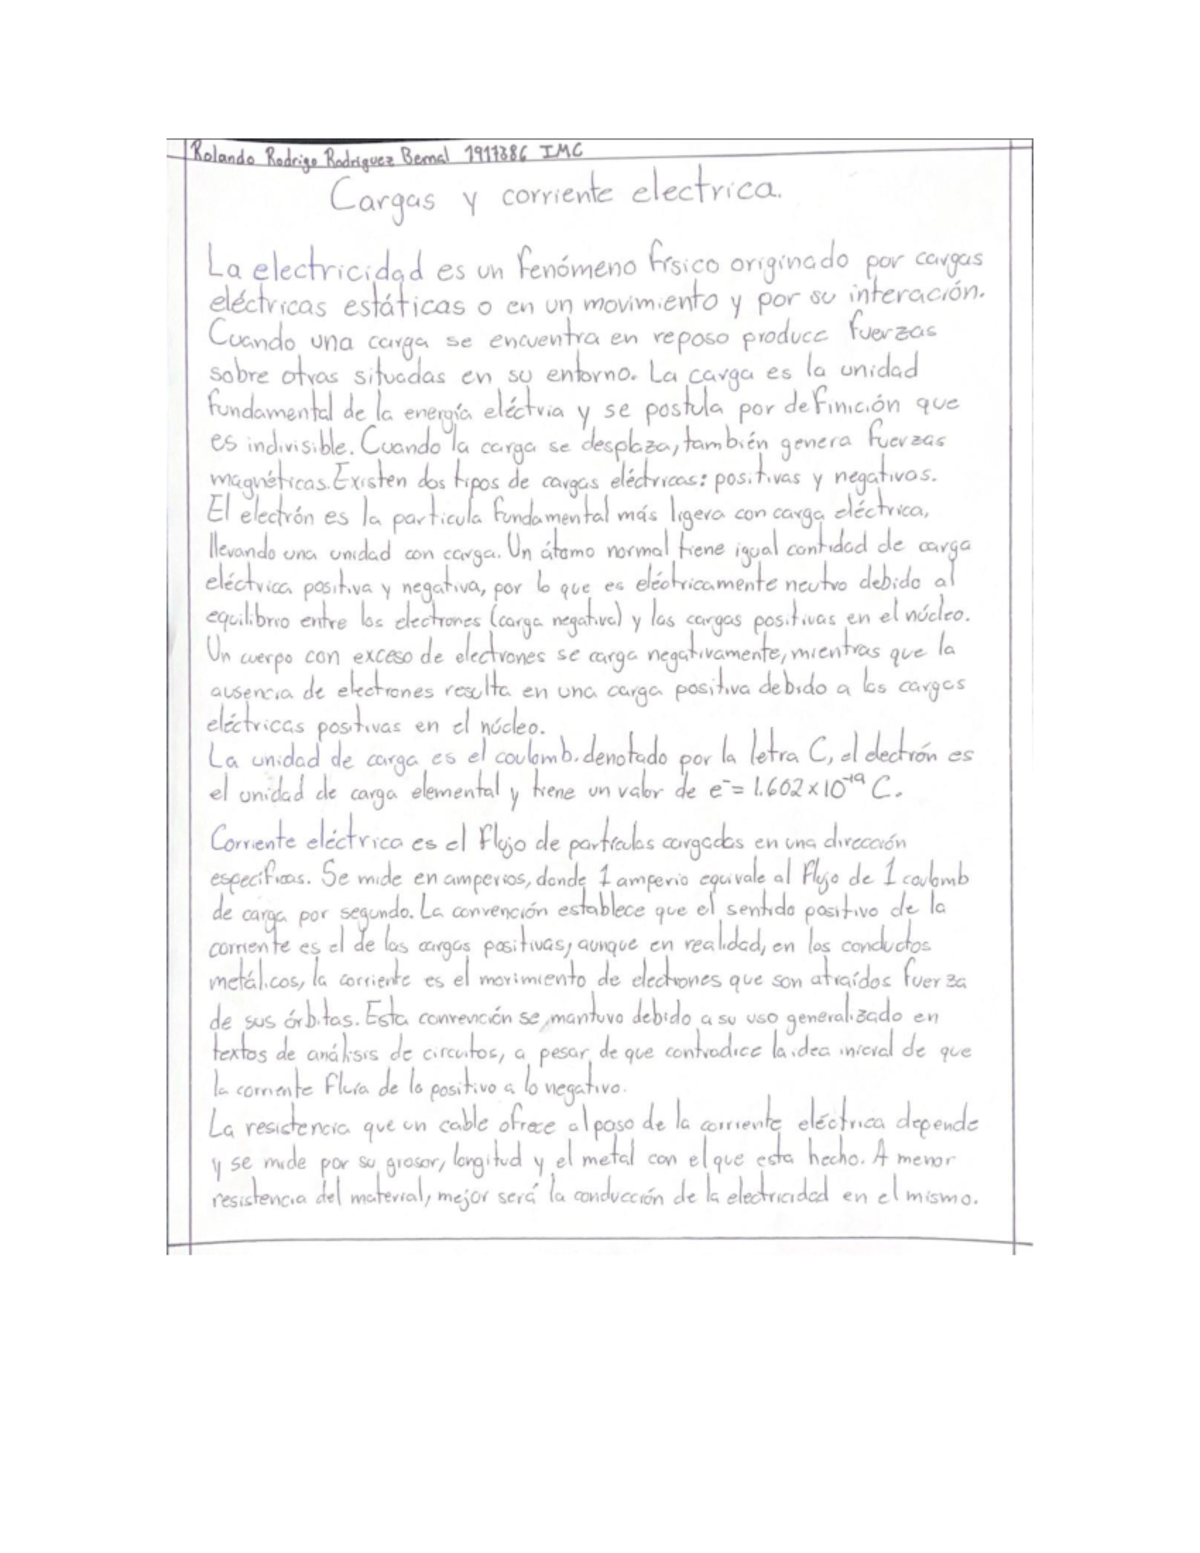 Rolando Rodrigo Rodriguez Bernal 1917386 IMC
Cargas y corriente electrica.
La electricidad es un fenómeno físico originado por cargas
eléctricas estáticas o en un movimiento y por su interación.
Cuando una carga se encuentra en reposo produce fuerzas
sobre otras situadas en su entorno. La carga es la unidad
fundamental de la energía eléctria y se postula por definición que
es indivisible. Cuando la carga se desplaza, también genera fuerzas
magnéticas. Existen dos tipos de cargas eléctricas: positivas y negativas.
El electrón es la particula fundamental más ligera con carga eléctrica,
llevando una unidad con carga. Un átomo normal tiene igual cantidad de carga
eléctrica positiva y negativa, por lo que es eléctricamente neutro debido al
equilibrio entre los electrones (carga negativa) y las cargas positivas en el núcleo.
Un cuerpo con exceso de electrones se carga negativamente, mientras que la
ausencia de electrones resulta en una carga positiva debido a las cargas
eléctricas positivas en el núcleo.
La unidad de carga es el coulomb. denotado por la letra C, el electrón es
el unidad de carga elemental y tiene un valor de e⁻= 1.602×10⁻¹⁹ C.
Corriente eléctrica es el flujo de partículas cargadas en una dirección
específicas. Se mide en amperios, donde 1 amperio equivale al flujo de 1 coulomb
de carga por segundo. La convención establece que el sentido positivo de la
corriente es el de las cargas positivas, aunque en realidad, en los conductos
metálicos, la corriente es el movimiento de electrones que son atraídos fuerza
de sus órbitas. Esta convención se mantuvo debido a su uso generalizado en
textos de análisis de circuitos, a pesar de que contradice la idea inicial de que
la corriente fluía de lo positivo a lo negativo.
La resistencia que un cable ofrece al paso de la corriente eléctrica depende
y se mide por su grosor, longitud y el metal con el que esta hecho. A menor
resistencia del material, mejor será la conducción de la electricidad en el mismo.